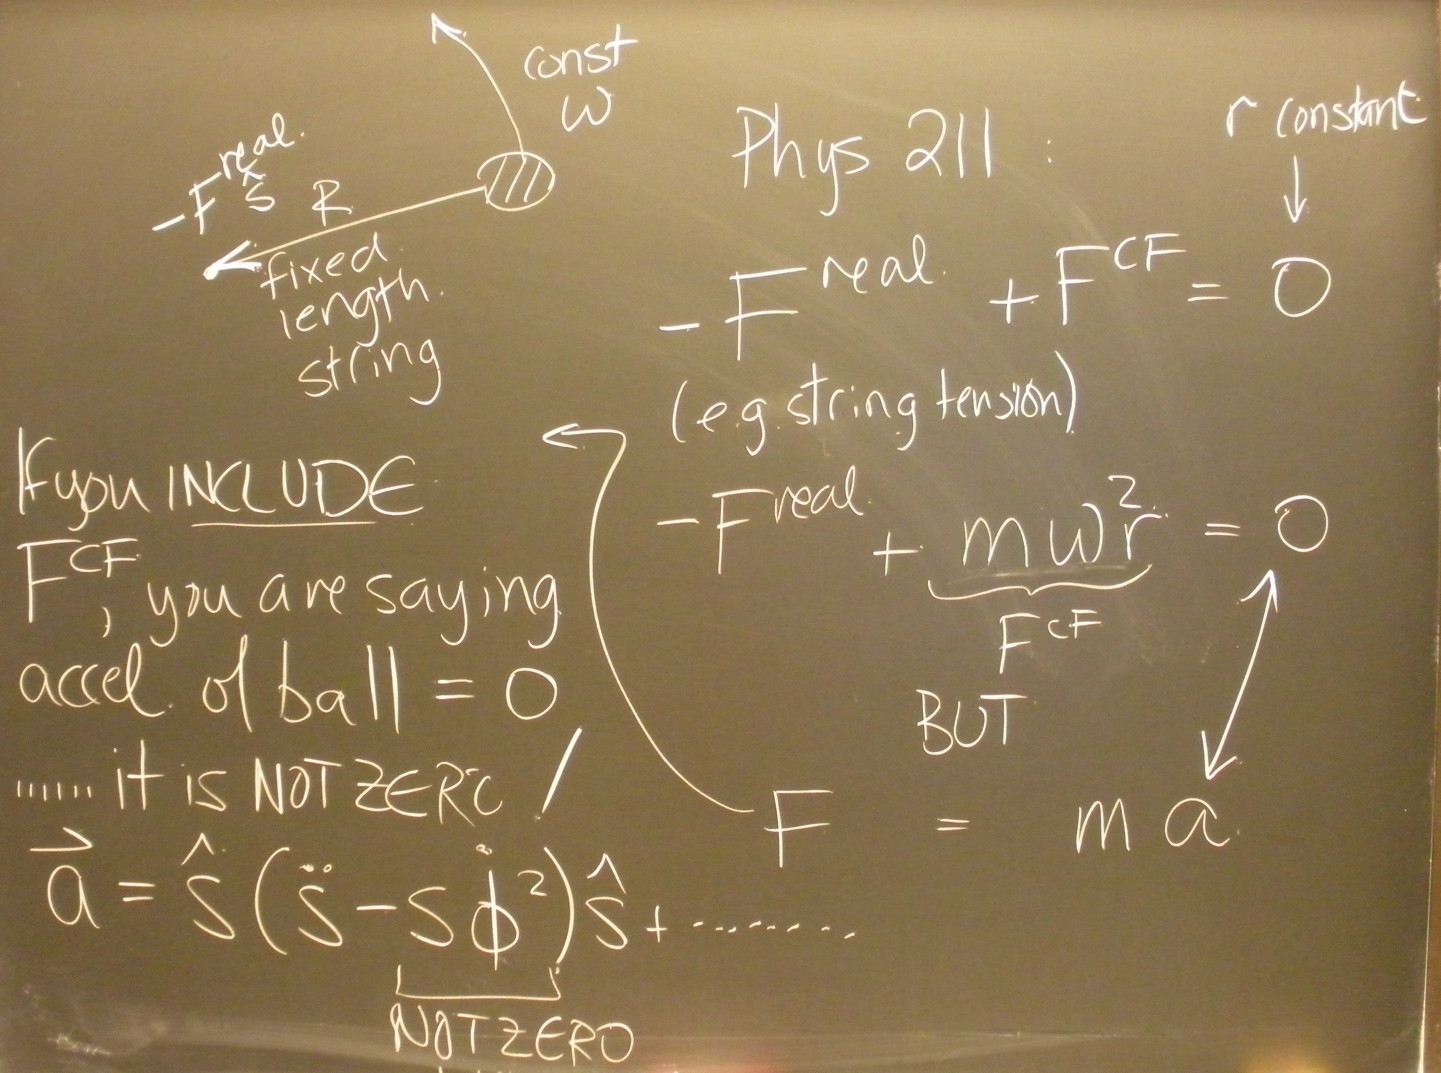 const
ω
-F^real ŝ
R
fixed
length
string
Phys 211 :
r constant
↓
-F^real + F^CF = 0
(eg string tension)
-F^real + mω²r = 0
F^CF
BUT
F = ma
If you INCLUDE
F^CF, you are saying
accel. of ball = 0
...... it is NOT ZERO /
a⃗ = ŝ(s̈ - sφ̇²)ŝ + ........
NOT ZERO